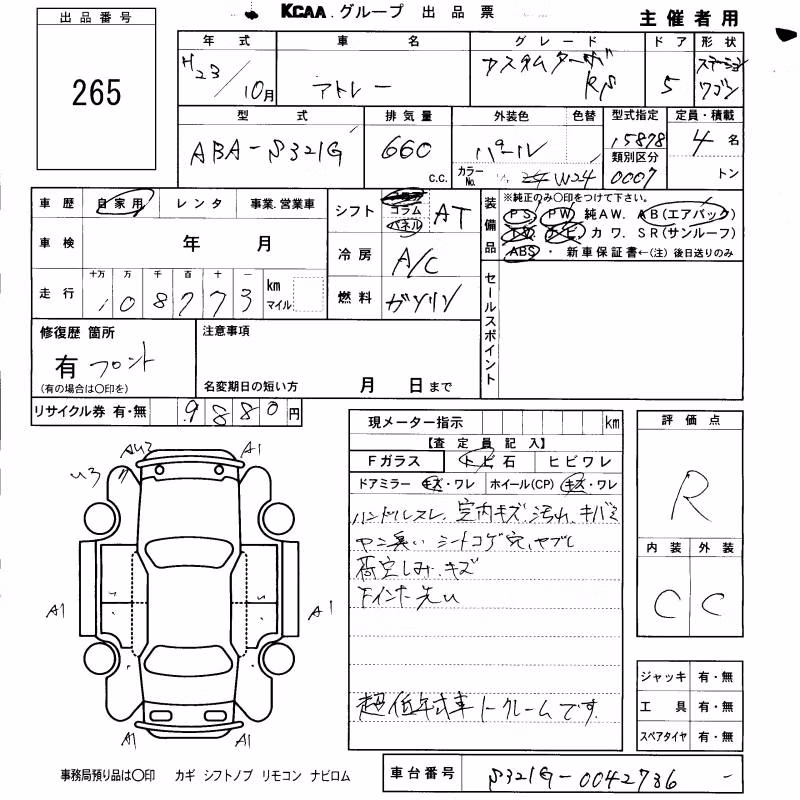 KCAA グループ 出品票
主催者用
出品番号
265
年式 車名 グレード ドア 形状
H23/10月 アトレー カスタムターボRS 5 ステーションワゴン
型式 排気量 外装色 色替 型式指定 定員・積載
ABA-S321G 660 c.c. パール カラーNo. W24 15878 4名
類別区分
0007 トン
車歴 自家用 レンタ 事業.営業車
車検 年 月
走行 十万 万 千 百 十 一 km マイル
108773
シフト コラム パネル AT
冷房 A/C
燃料 ガソリン
装備品 ※純正のみ〇印をつけて下さい。
PS PW 純AW. AB(エアバック)
カワ. SR(サンルーフ)
ABS・ 新車保証書←(注)後日送りのみ
セールスポイント
修復歴 箇所
有 フロント
(有の場合は〇印を)
注意事項
名変期日の短い方 月 日まで
リサイクル券 有・無 9880円
現メーター指示 km
【査定員記入】
Fガラス トビ石 ヒビワレ
ドアミラー キズ・ワレ ホイール(CP) キズ・ワレ
ハンドルスレ、室内キズ、汚れ、キバミ
ヤニ臭い シートコゲ穴、ヤブレ
荷室しみ、キズ
下インナー洗い
超低年式車ノークレームです。
評価点
R
内装 外装
C C
ジャッキ 有・無
工具 有・無
スペアタイヤ 有・無
AU2 A1
U3
A1 A1
A1 A1
事務局預り品は〇印 カギ シフトノブ リモコン ナビロム
車台番号 S321G-0042736